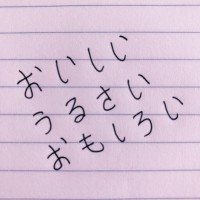 おいしい
うるさい
おもしろい